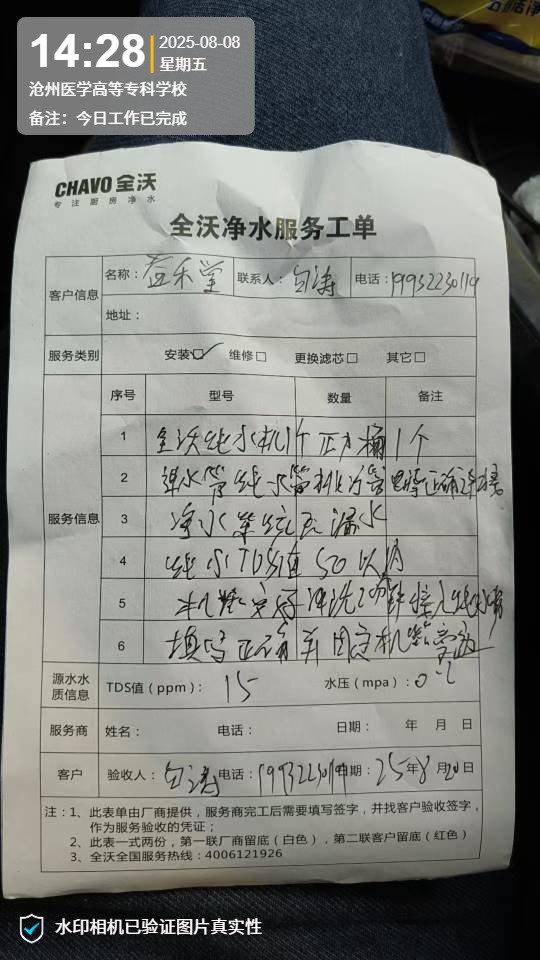 14:28 2025-08-08
星期五
沧州医学高等专科学校
备注：今日工作已完成
CHAVO 全沃
专注厨房净水
全沃净水服务工单
客户信息 名称：益禾堂 联系人：白涛 电话：19932230119
地址：
服务类别 安装☑ 维修☐ 更换滤芯☐ 其它☐
服务信息 序号 型号 数量 备注
1 全沃纯水机1个 压力桶1个
2 进水管纯水管排污管 正确连接
3 净水系统无漏水
4 纯水TDS值 50以内
5 机器安好冲洗 钟接入纯水桶
6 填写正确并固定机器
源水水质信息 TDS值（ppm）：15 水压（mpa）：0.2
服务商 姓名： 电话： 日期： 年 月 日
客户 验收人：白涛 电话：19932230119 日期：25年8月20日
注：1、此表单由厂商提供，服务商完工后需要填写签字，并找客户验收签字，
作为服务验收的凭证；
2、此表一式两份，第一联厂商留底（白色），第二联客户留底（红色）
3、全沃全国服务热线：4006121926
水印相机已验证图片真实性